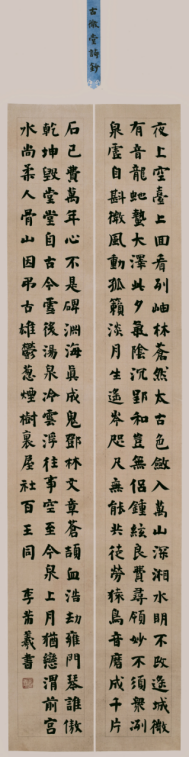 古微堂詩鈔
夜上空臺上回看列岫林蒼然太古色斂入萬山深湘水明不改邅城微
有音龍蛇蟄大澤此夕最陰沉郢和豈無侶鍾絃良費尋領妙不須眾冽
泉虛自斟微風動孤籟淡月生遙岑咫尺無能共徒勞猿鳥音磨成千片
石已費萬年心不是碑淵海真成鬼鄧林文章蒼頡血浩劫雍門琴誰儆
乾坤毀堂堂自古今雪後湯泉冷雲浮往事空至今泉上月猶戀渭前宮
水尚柔人骨山因弔古雄鬱蔥煙樹裏屋社百王同 李 羲書